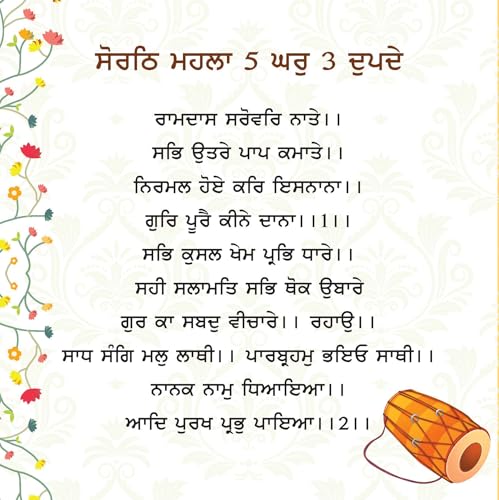 ਸੋਰਠਿ ਮਹਲਾ 5 ਘਰੁ 3 ਦੁਪਦੇ
ਰਾਮਦਾਸ ਸਰੋਵਰਿ ਨਾਤੇ।।
ਸਭਿ ਉਤਰੇ ਪਾਪ ਕਮਾਤੇ।।
ਨਿਰਮਲ ਹੋਏ ਕਰਿ ਇਸਨਾਨਾ।।
ਗੁਰਿ ਪੂਰੈ ਕੀਨੇ ਦਾਨਾ।।1।।
ਸਭਿ ਕੁਸਲ ਖੇਮ ਪ੍ਰਭਿ ਧਾਰੇ।।
ਸਹੀ ਸਲਾਮਤਿ ਸਭਿ ਥੋਕ ਉਬਾਰੇ
ਗੁਰ ਕਾ ਸਬਦੁ ਵੀਚਾਰੇ।। ਰਹਾਉ।।
ਸਾਧ ਸੰਗਿ ਮਲੁ ਲਾਥੀ।। ਪਾਰਬ੍ਰਹਮੁ ਭਇਓ ਸਾਥੀ।।
ਨਾਨਕ ਨਾਮੁ ਧਿਆਇਆ।।
ਆਦਿ ਪੁਰਖ ਪ੍ਰਭੁ ਪਾਇਆ।।2।।